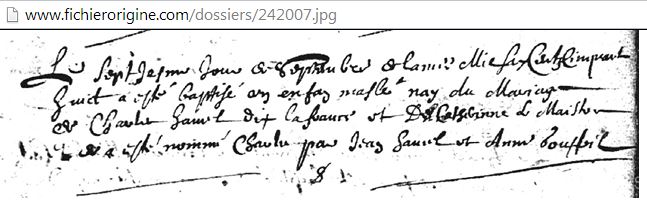 www.fichierorigine.com/dossiers/242007.jpg
Le septiesme Jour de Septembre de lan Mil six Centz Cinquant
huict a esté baptisé un enfan masle nay du Mariage
de Charle hamel dit la france et De Catherine le Maistre
et a esté nommé Charle par Jean hamel et Anne